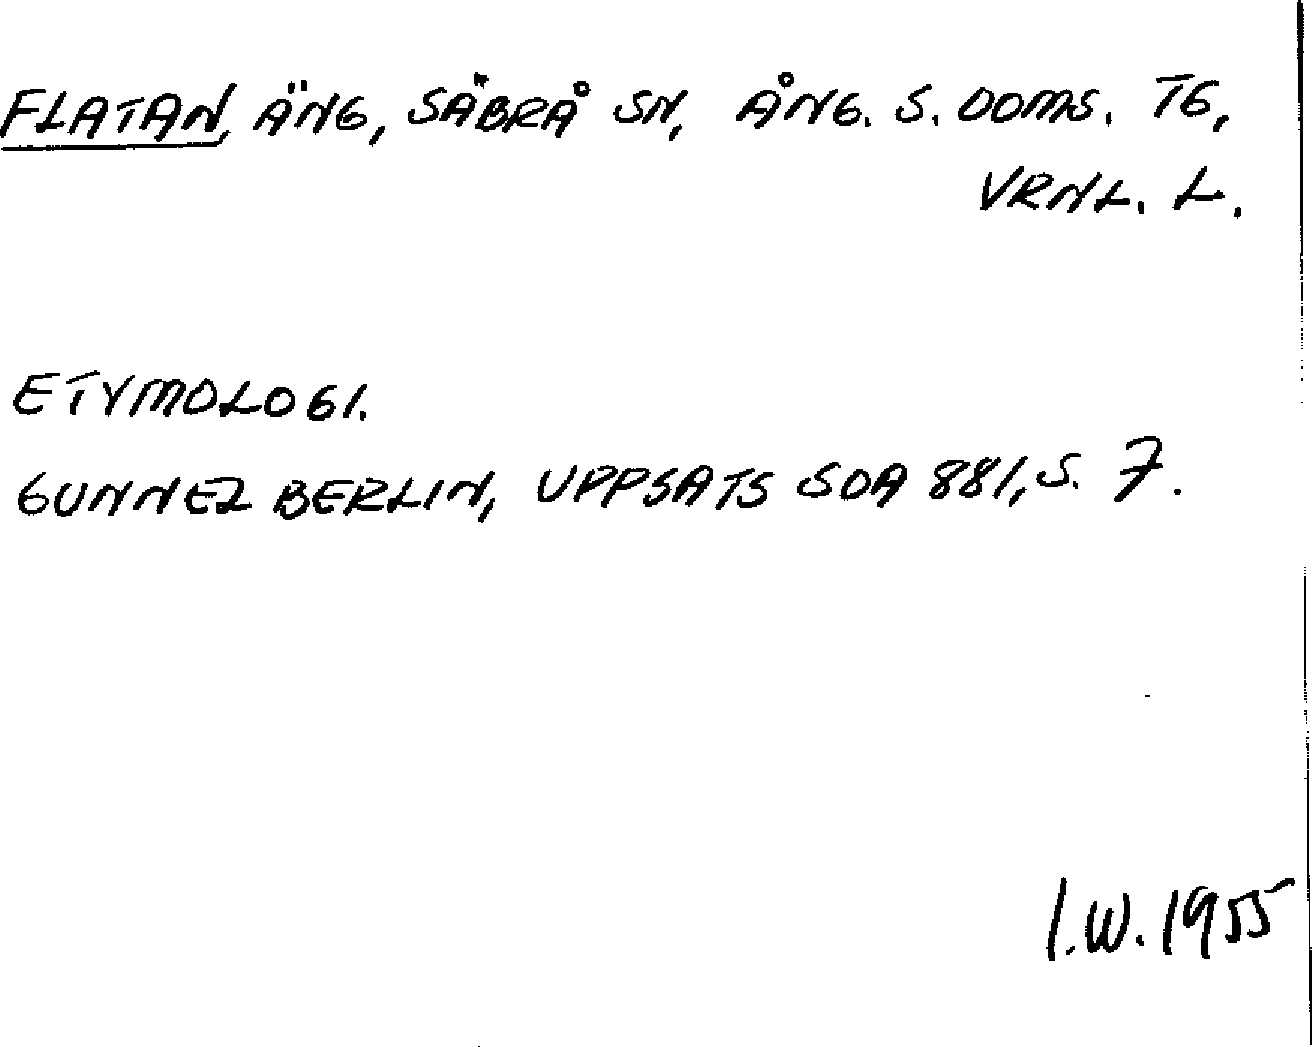 FLATAN, ÄNG, SÄBRÅ SN, ÅNG. S. DOMS. TG,
VRNL. L.
ETYMOLOGI.
GUNNEL BERLIN, UPPSATS SOA 881, S. 7.
I.W. 1955